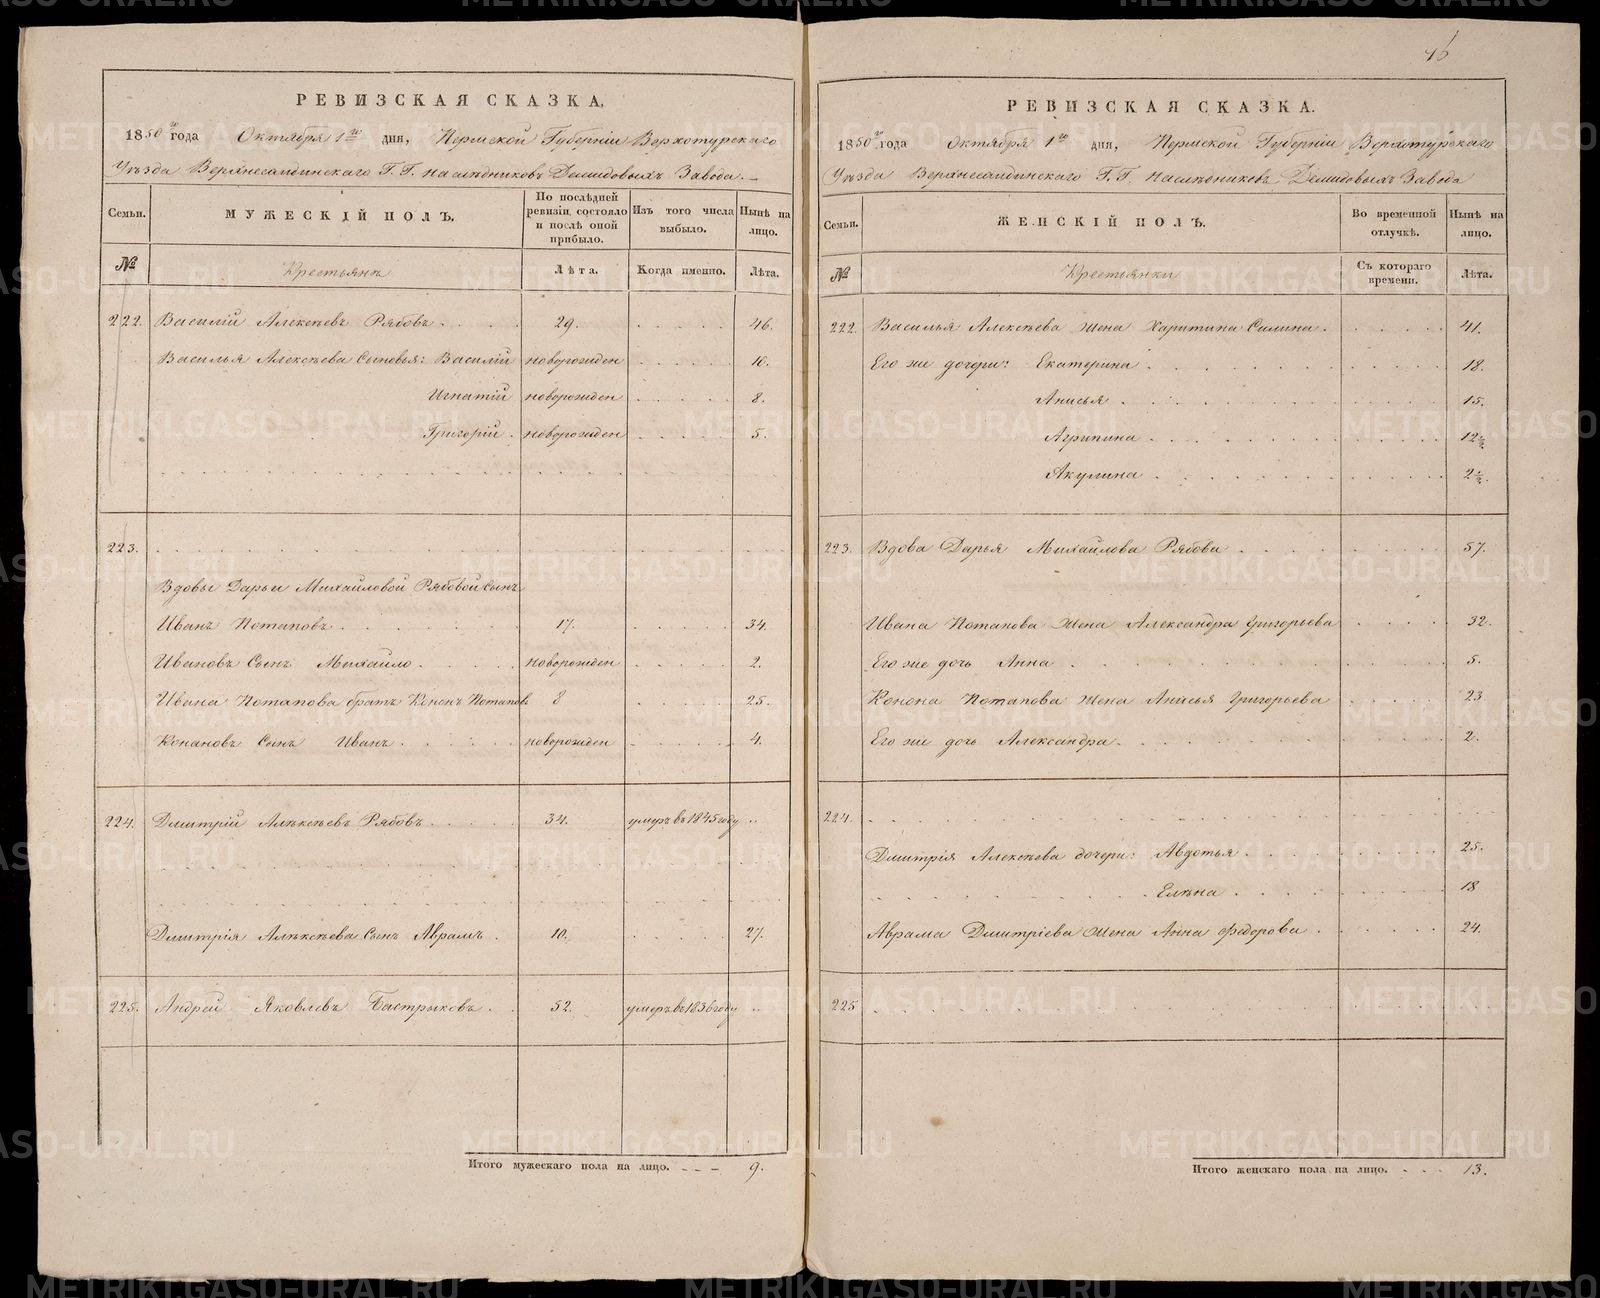 РЕВИЗСКАЯ СКАЗКА,
1850го года Октября 1го дня, Пермской Губерніи Верхотурскаго
Уѣзда Верхнесалдинскаго Г. Г. наслѣдниковъ Демидовыхъ Завода. –
Семьи.
МУЖЕСКІЙ ПОЛЪ.
По послѣдней ревизіи состояло и послѣ оной прибыло.
Изъ того числа выбыло.
Нынѣ на лицо.
№
Крестьянъ
Лѣта.
Когда именно.
Лѣта.
222. Василій Алексѣевъ Рябовъ 29. 46.
Василья Алексѣева Сыновья: Василій новорожден 10.
Игнатій новорожден 8.
Григорій новорожден 5.
223.
Вдовы Дарьи Михайловой Рябовой сынъ
Иванъ Потаповъ 17. 34.
Ивановъ Сынъ Михайло новорожден 2.
Ивана Потапова братъ Кононъ Потаповъ 8 25.
Конановъ Сынъ Иванъ новорожден 4.
224. Дмитрій Алексѣевъ Рябовъ 34. умеръ въ 1845 году
Дмитрія Алексѣева Сынъ Аврамъ 10. 27.
225. Андрей Яковлевъ Бастрыковъ 52. умеръ въ 1836 году
Итого мужескаго пола на лицо. 9.
46
РЕВИЗСКАЯ СКАЗКА.
1850го года Октября 1го дня, Пермской Губерніи Верхотурскаго
Уѣзда Верхнесалдинскаго Г. Г. наслѣдниковъ Демидовыхъ Завода
Семьи.
ЖЕНСКІЙ ПОЛЪ.
Во временной отлучкѣ.
Нынѣ на лицо.
№
Крестьянки
Съ котораго времени.
Лѣта.
222. Василья Алексѣева жена Харитина Силина 41.
Его же дочери: Екатерина 18.
Анисья 15.
Агрипина 12½
Акулина 2½.
223. Вдова Дарья Михайлова Рябова 57.
Ивана Потапова жена Александра Григорьева 32.
Его же дочь Анна 5.
Конона Потапова жена Анисья Григорьева 23
Его же дочь Александра 2.
224.
Дмитрія Алексѣева дочери: Авдотья 25.
Елѣна 18
Аврама Дмитріева Жена Анна Федорова 24.
225
Итого женскаго пола на лицо. 13.
METRIKI.GASO-URAL.RU